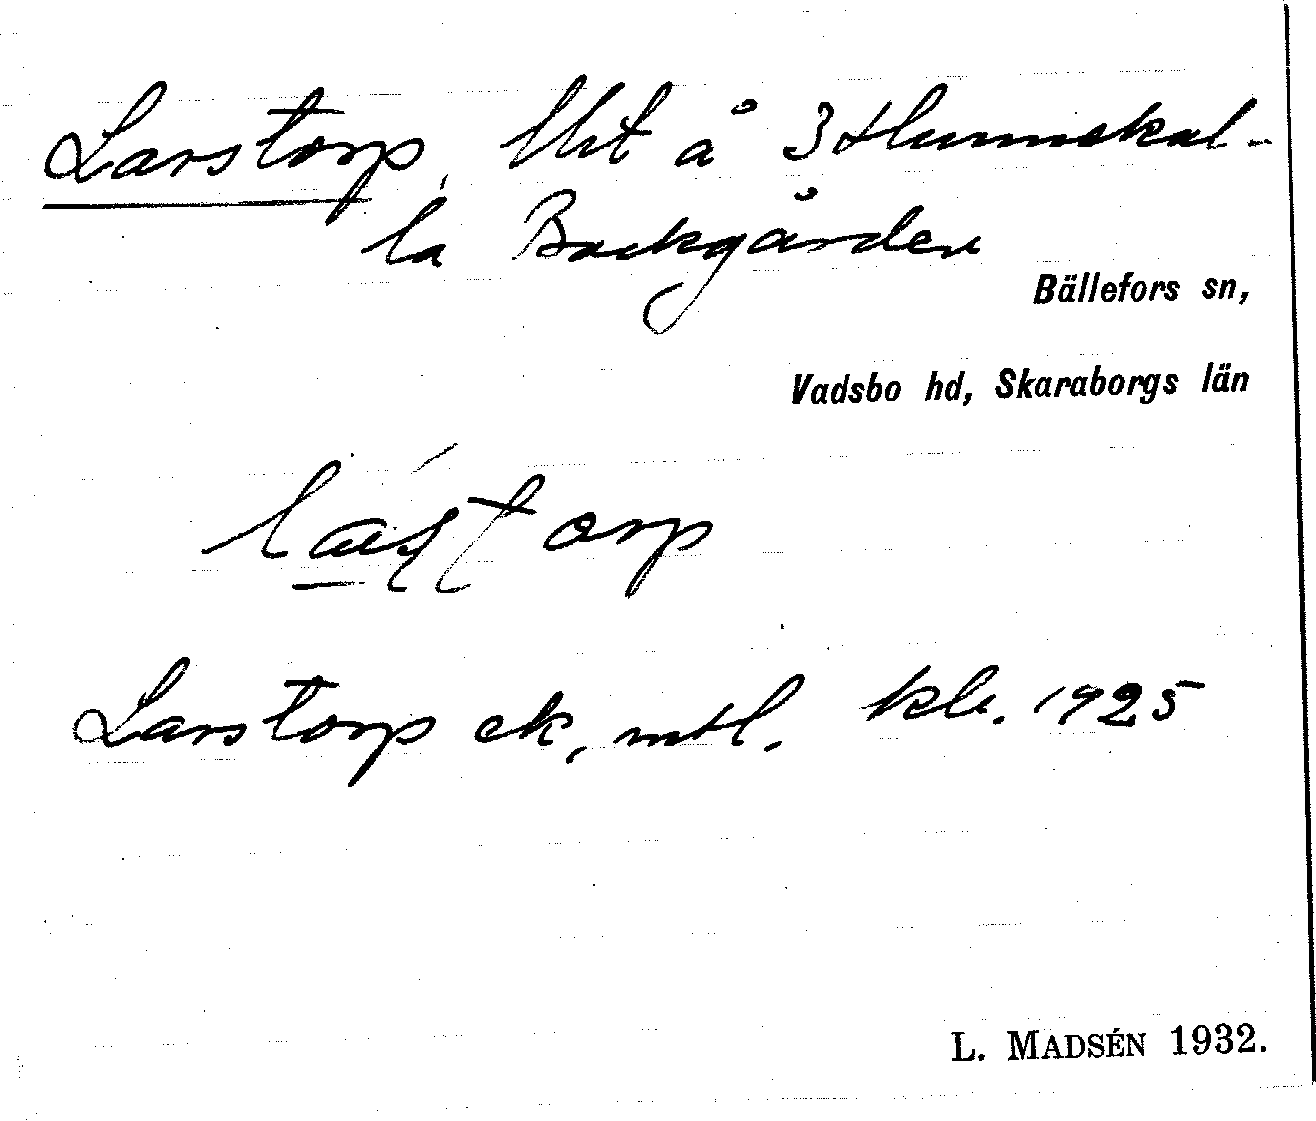 Larstorp, lht å 3 Hunnekul-
la Backgården
Bällefors sn,
Vadsbo hd, Skaraborgs län
Larstorp ek, mtl. kbr. 1925
L. MADSÉN 1932.